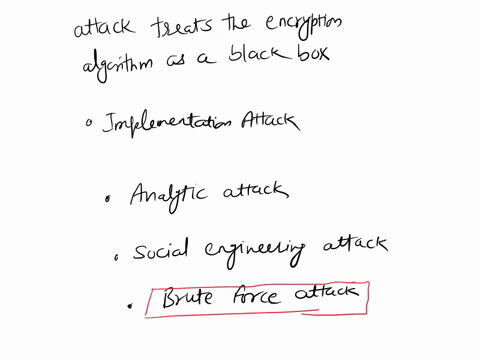 attack treats the encryption
algorithm as a black box
Implementation Attack
Analytic attack
Social engineering attack
Brute force attack